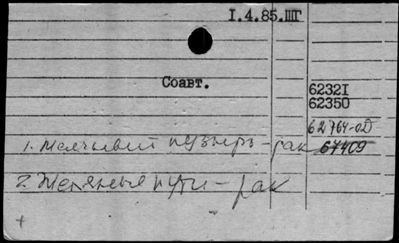 I.4.85.ШГ
Соавт.
6232I
62350
62764-0D
1. Мочевый пузырь - рак 67409
2. Желчные пути - рак
+